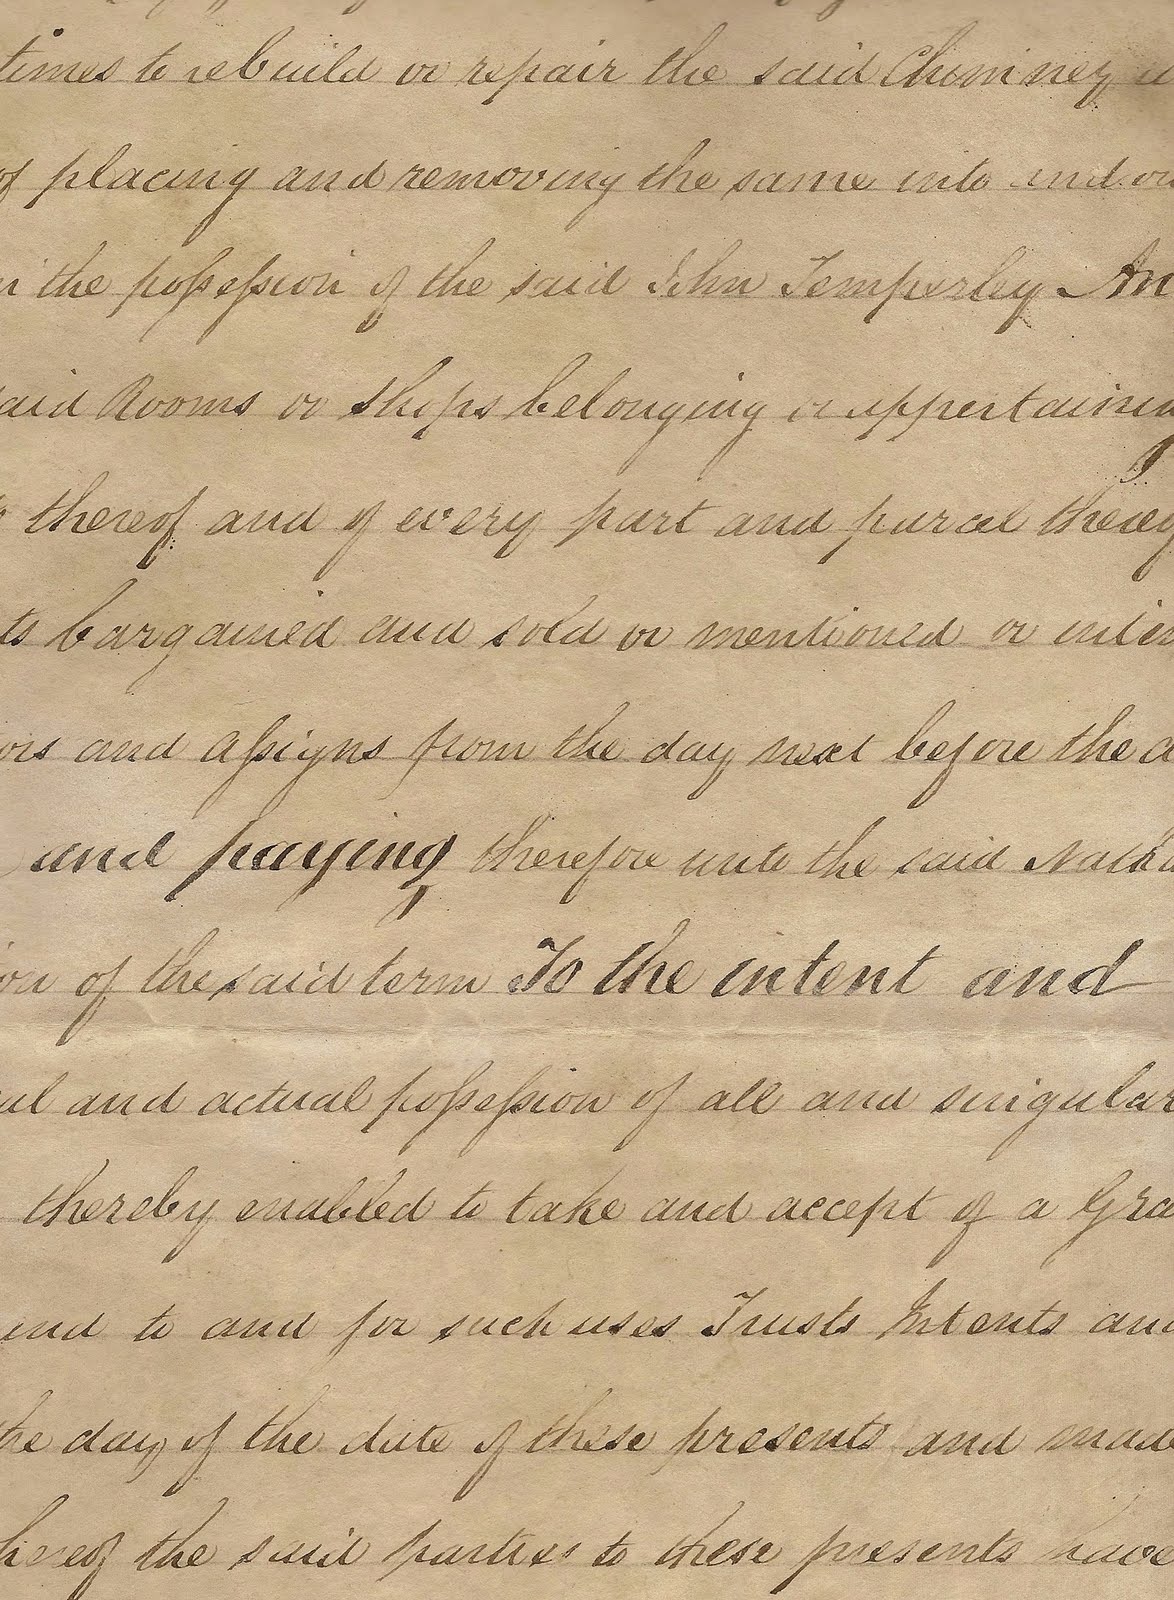 times to rebuild or repair the said Chimney
of placing and removing the same into and or
the poſseſsion of the said John Temperley An
aid Rooms or Shops belonging or appertainin
thereof and of every part and parcel thereof
ts bargained and sold or mentioned or inten
ors and aſsigns from the day next before the d
and paying therefore unto the said Natha
on of the said term To the intent and
ul and actual poſseſsion of all and singular
thereby enabled to take and accept of a Gra
and to and for such uses Trusts Intents and
he day of the date of these presents and made
hereof the said parties to these presents have